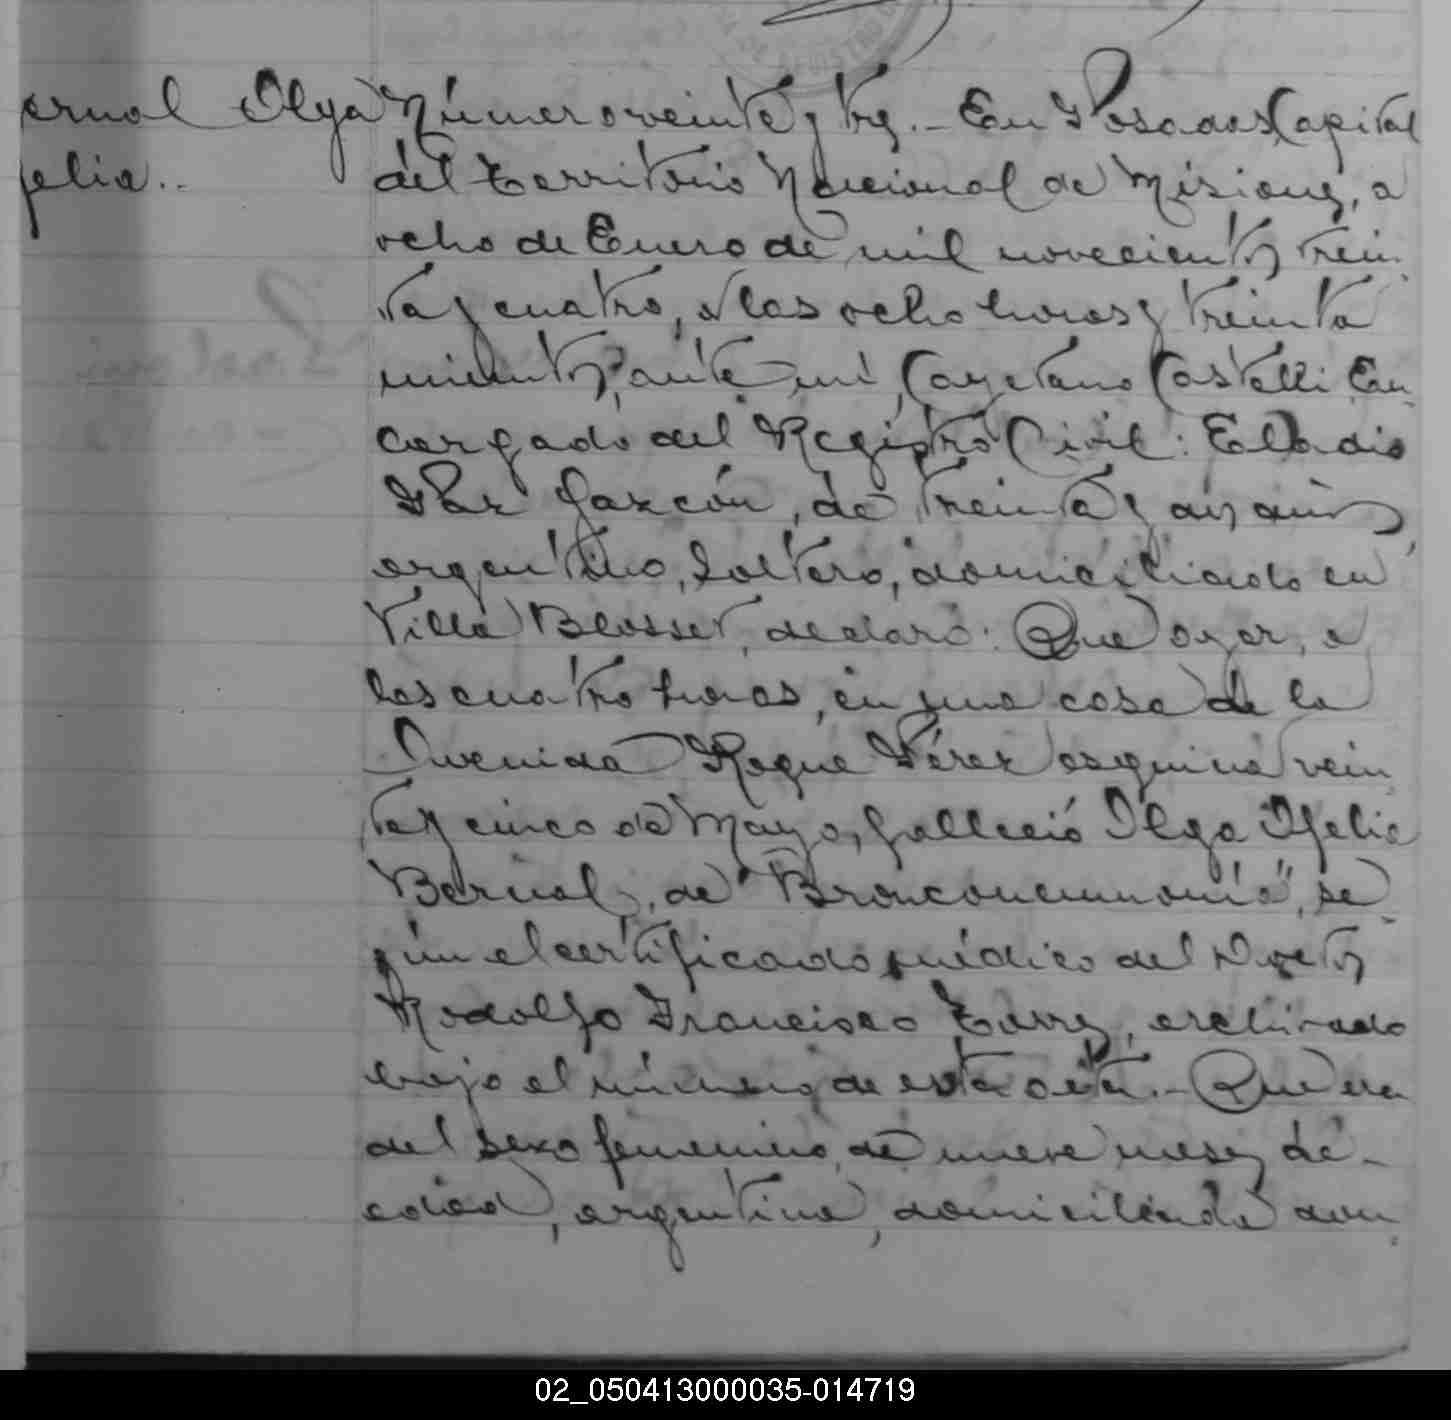 ernal Olga
felia..
Número veinte y tres.- En Posadas, Capital
del Territorio Nacional de Misiones, a
ocho de Enero de mil novecientos trein-
ta y cuatro, a las ocho horas y treinta
minutos, ante mí, Cayetano Castelli En-
cargado del Registro Civil: Eladio
Paz Garzón, de treinta y dos años,
argentino, soltero, domiciliado en
Villa Blosset, declaró: Que ayer, a
las cuatro horas, en una casa de la
Avenida Roque Pérez esquina vein-
te y cinco de Mayo, falleció Olga Ofelia
Bernal, de "Bronconeumonía", se-
gún el certificado médico del Doctor
Rodolfo Francisco Torres, archivado
bajo el número de esta acta.- Que era
del sexo femenino, de nueve meses de
edad, argentina, domiciliada don-
02_050413000035-014719